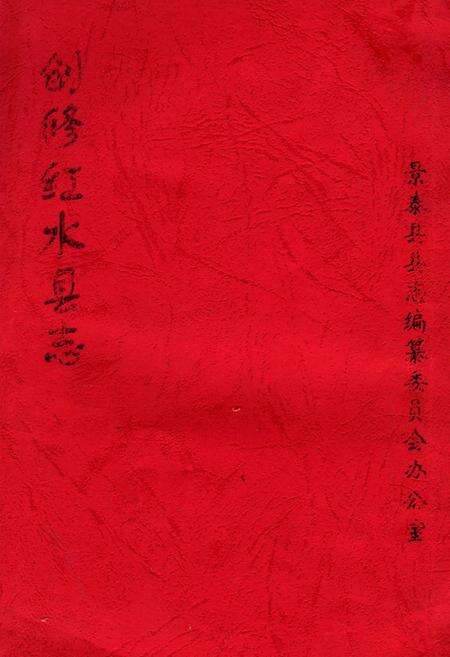 创修红水县志
景泰县县志编纂委员会办公室